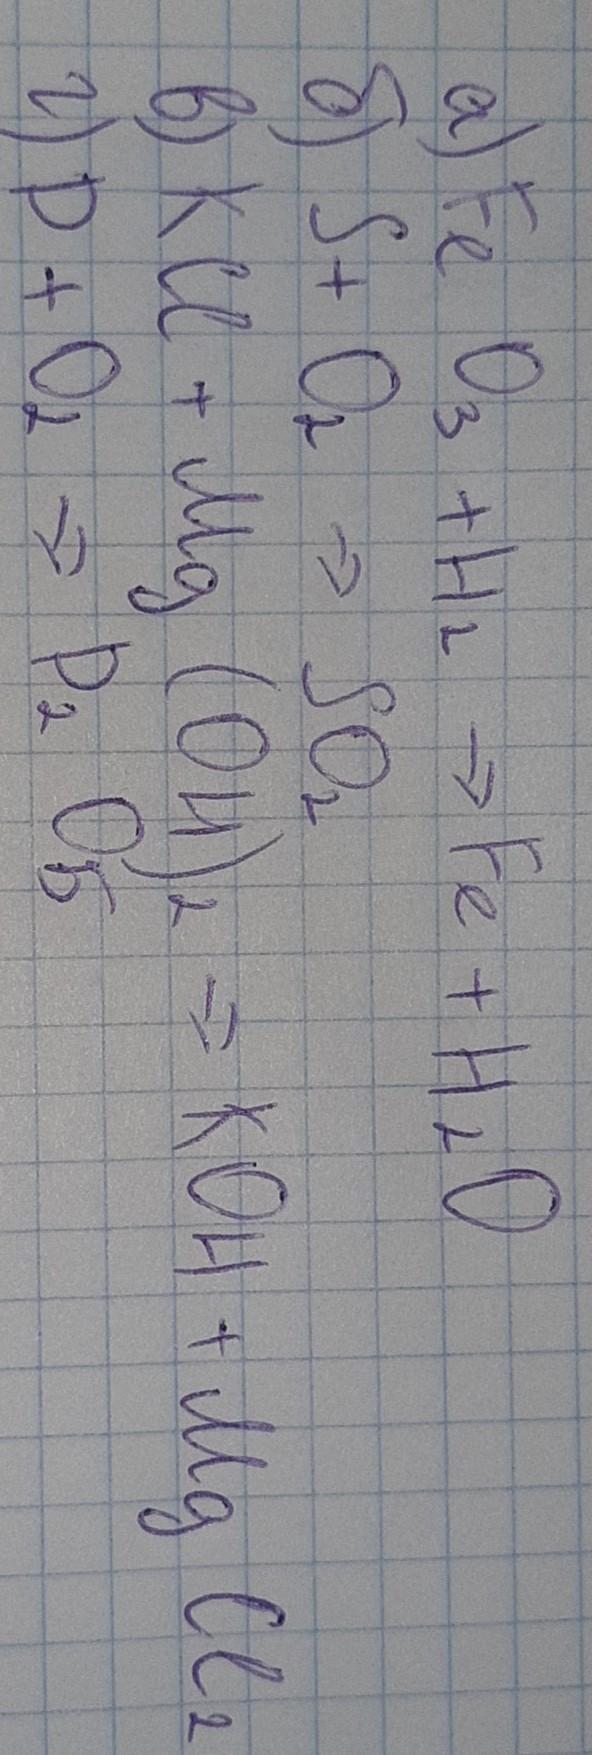 а) Fe O₃ + H₂ → Fe + H₂O
б) S + O₂ → SO₂
в) KCl + Mg(OH)₂ → KOH + MgCl₂
г) P + O₂ → P₂O₅